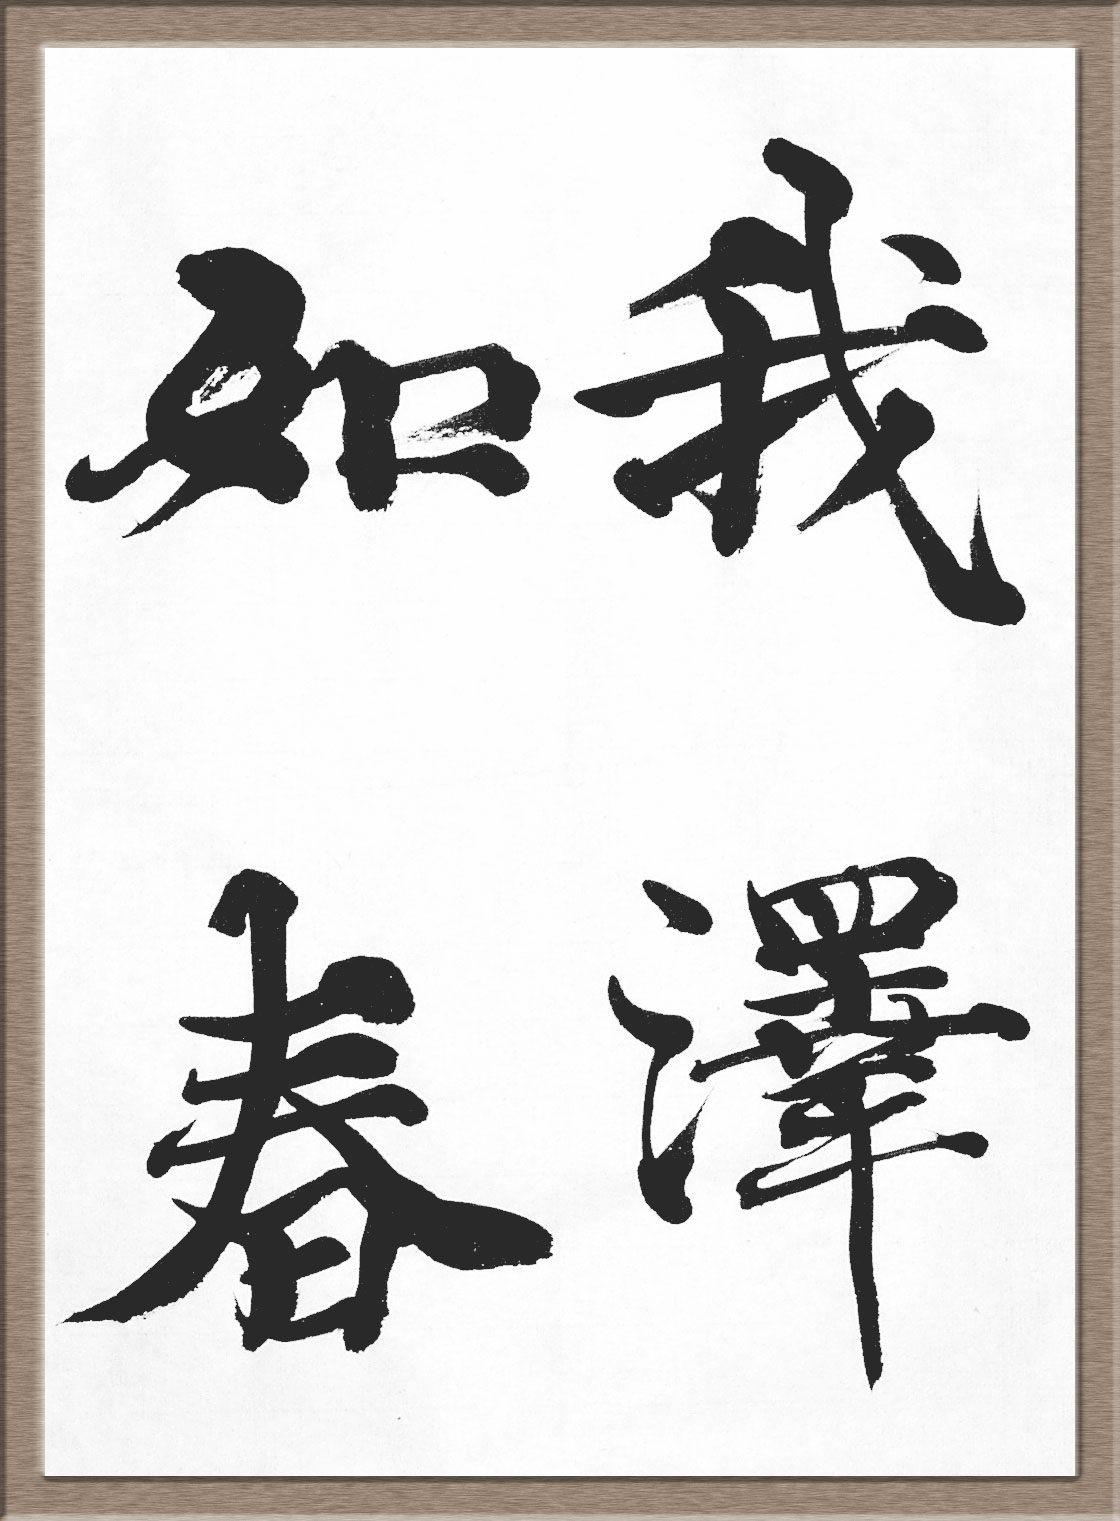 我澤
如春